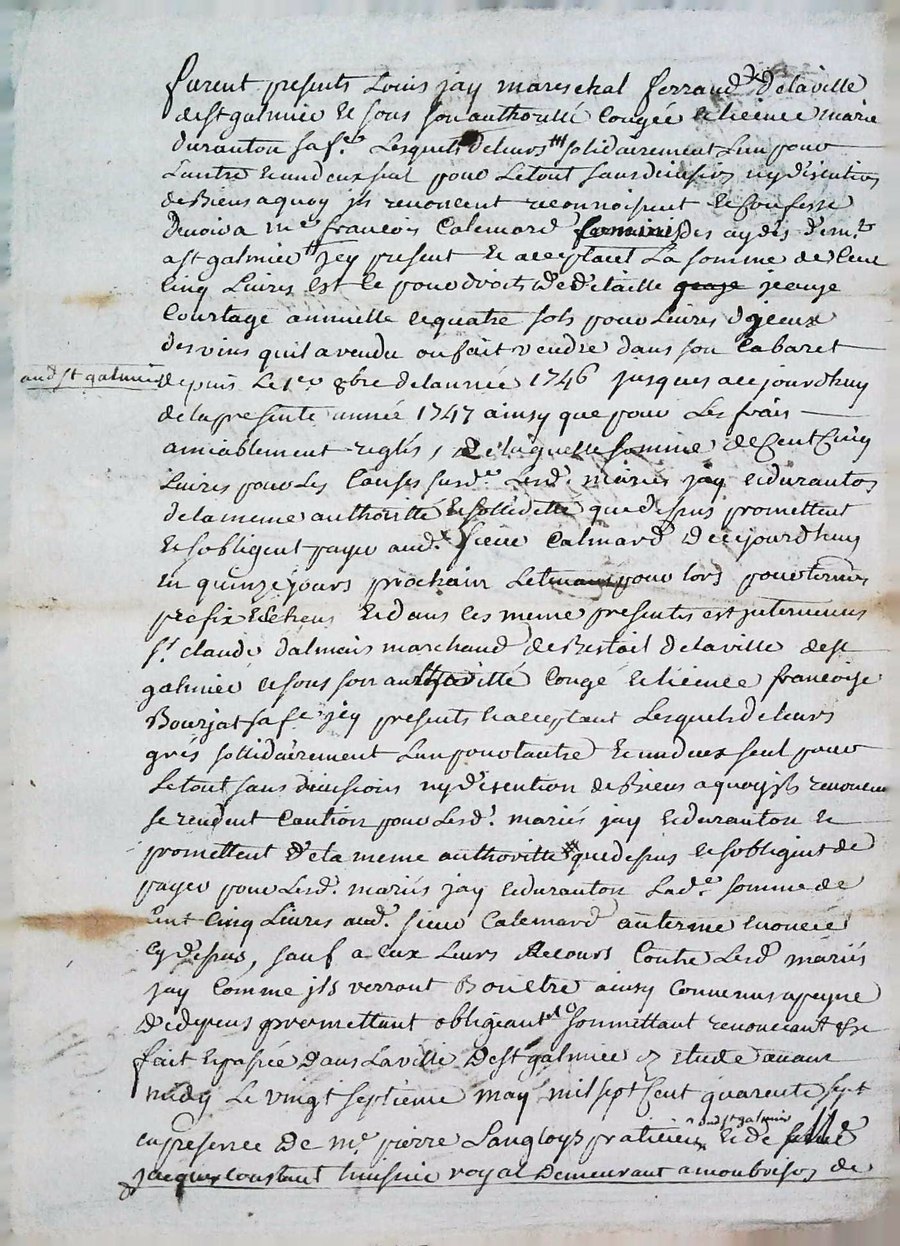 furent presents Louis jay mareschal ferrand delaville
de st galmier & sous son authoritté congée & licence marie
duranton sa fe. Lesquels de leurs solidairement Lun pour
Lautre & un deux seul pour Letout sans division ny discution
de Biens aquoy jls renoncent reconnoissent & confesse
devoir a me françois Calemard des aydes dem.t
a st galmier jcy present & acceptant La somme de Cent
Cinq Livres et ce pour droits de detaille jeauge
Courtage annuelle & quatre sols pour Livres djceux
des vins quil a vendu ou fait vendre dans son Cabaret
aud st galmier depuis Le 1er 8bre de lannée 1746 jusques a cejourdhuy
de la presente année 1747 ainsy que pour Les frais
amiablement reglés, de laquelle somme de Cent Cinq
Livres pour Les Causes susd.es Lesd. mariés jay & duranton
de la meme authoritté & sollidette que dessus promettent
& sobligent payer aud. sieur Calmard de cejourdhuy
en quinze jours prochain pour lors pour terme
prefix & echeus & dans ces meme presentes est jntervenus
sr claude dalmais marchand de la ville de st
galmier & sous son authoritté congé & licence francoise
Bourjat sa fe jcy presents & acceptant Lesquels de leurs
grés sollidairement Lun pour lautre & un deux seul pour
Le tout sans division ny discution de Biens aquoy jls renoncent
se rendent Caution pour Lesd. mariés jay & duranton &
promettent de la meme authoritté que dessus & sobligent de
payer pour Lesd. mariés jay & duranton Lad.e somme de
cent Cinq Livres aud. sieur Calemard au terme enoncé
cy dessus, sauf a eux Leurs Recours Contre Lesd mariés
jay Comme jls verront Bon etre ainsy Convenus apeyne
de depens promettant obligeant sommettant renonceant &c
fait & passée dans Laville de st galmier etude avant
midy Le vingt septieme may mil sept Cent quarente sept
en presence de me. pierre Langloys praticien aud st galmier & de
jacques Constant huissier royal demeurant a monbrison de